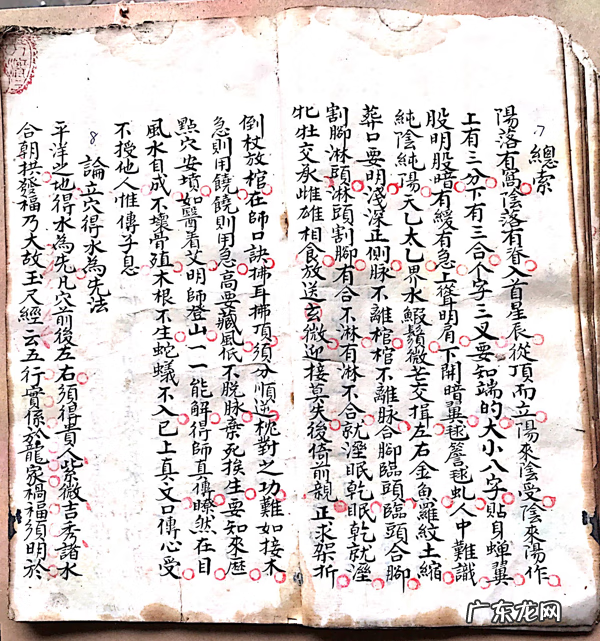 7 總索
陽落有窩陰落有脊入首星辰從頂而立陽來陰受陰來陽作
上有三分下有三合个字三叉要知端的大小八字貼身蟬翼
股明股暗有緩有急上聳明肩下開暗翼毬簷毬虬人中難識
純陰純陽天乙太乙界水蝦鬚微芒交揖左右金魚羅紋土縮
葬口要明淺深正側脉不離棺棺不離脉合脚臨頭臨頭合脚
割脚淋頭淋頭割脚有合不淋有淋不合就溼眠乾眠乾就溼
牝牡交承雌雄相食放送玄微迎接莫失後倚前親正求架折
倒杖放棺在師口訣拂耳拂頂須分順逆枕對之功難如接木
急則用饒饒則用急高要藏風低不脫脉棄死挨生要知來歷
點穴安墳如醫着艾明師登山一一能解得師直傳瞭然在目
風水自成不壞骨殖木根不生蛇蟻不入已上真文口傳心受
不授他人惟傳子息
8 論立穴得水為先法
平洋之地得水為先凡穴前後左右須得貴人紫微吉秀諸水
合朝拱發福乃大故玉尺經云五行實係於龍家禍福須明於
广东龙网